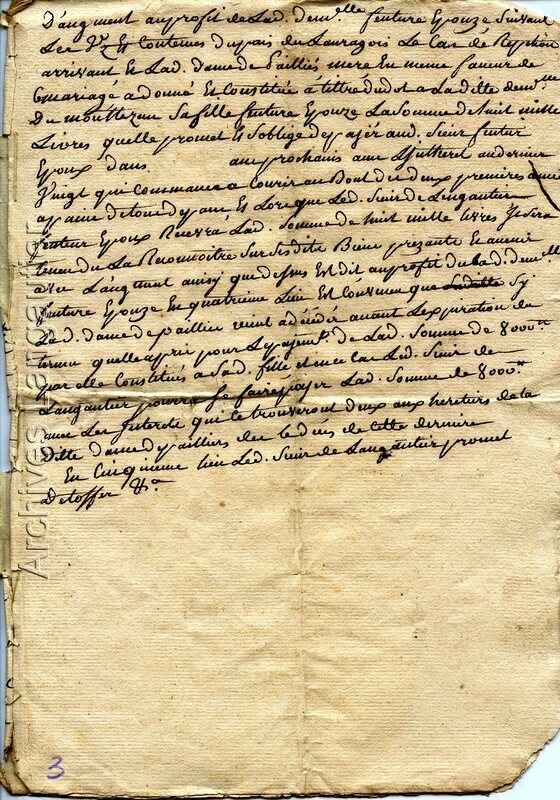 D'augment au profit de Lad. dem.lle future Epouze Suivant
Les Vz et Coutumes du païs du Lauragois Le Cas de Repetition
arrivant Et Lad. dame de Pailliés mere En meme faveur de
Ce mariage a donné Et Constitué a tiltre de dot a Ladille dem.lle
De Sa fille future Epouze La Somme de huit mille
Livres quelle promet Et S'oblige de payer aud. Sieur futur
Epoux dans an prochains avec L'Intheret au denier
Vingt qui Commancera a Courir au Bout de deux premieres années
Et Lorsque Led. Sieur de Langautier
futeur Epoux Recevra Lad. Somme de huit mille Livres Il Sera
tenu de La Reconnoitre Sur Sesdits Biens presants Et avenir
avec L'augmant ainsy que dessus Est dit au profit de Lad. dem.lle
future Epouze En quatrieme Lieu Est Convenu que Sy
Lad. dame de paillier vient a deceder avant L'expiration du
terme quelle a pris pour Le payem.t de Lad. Somme de 8000.tt
par elle Constituée a Sad. fille et en ce Cas Led. Sieur de
Langautier pourra Se faire payer Lad. Somme de 8000.tt
avec Les Interets qui Se trouveront deux aux heretiers de la
ditte dame de pailliers des le deces de Cette derniere
En Cinquieme Lieu Led. Sieur de Langautier promet
Detoffer &a
Archives Lansautier
3